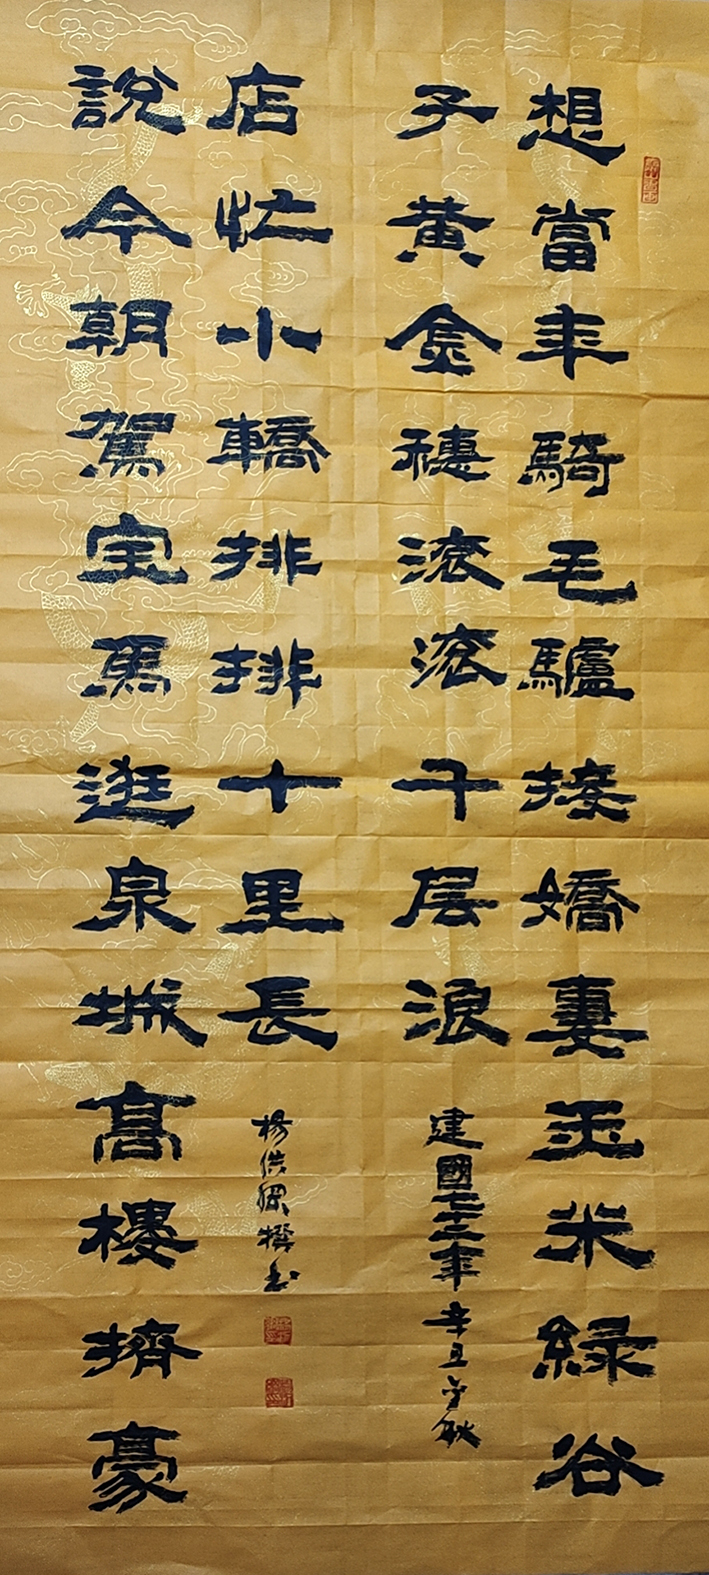 想當年騎毛驢接嬌妻玉米緑谷
子黃金穗滾滾千层浪
建國七十二年 辛丑金秋
說今朝駕宝馬逛泉城高樓擠豪
店忙小轎排排十里長
楊 撰书